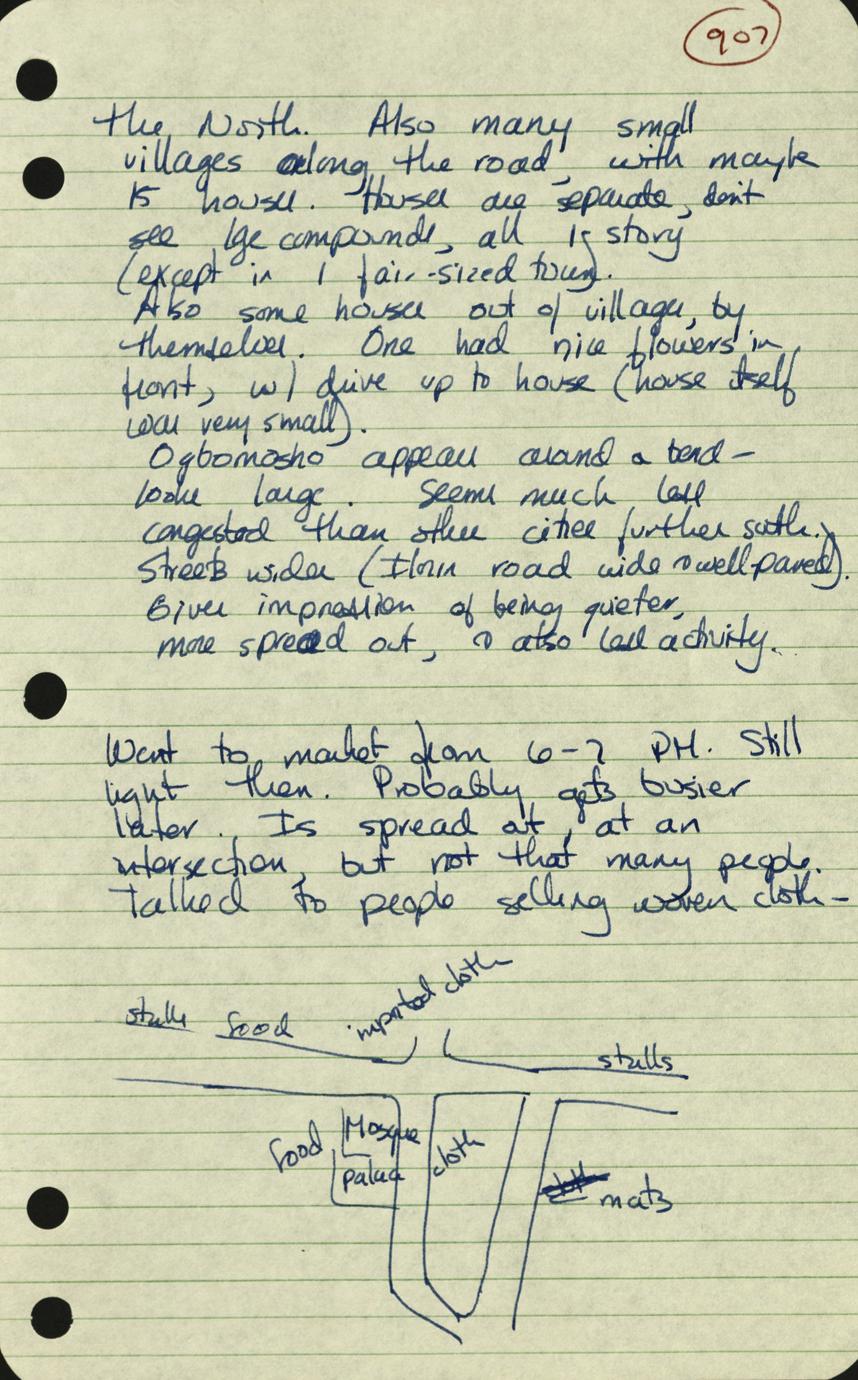 907
the North. Also many small
villages along the road, with maybe
15 houses. Houses are separate, don't
see lge compounds, all 1 story
(except in 1 fair-sized town).
Also some houses out of village, by
themselves. One had nice flowers in
front, w/ drive up to house (house itself
was very small).
Ogbomosho appears around a bend –
looks large. Seems much less
congested than other cities further south.
Streets wider (Ilorin road wide & well-paved).
Gives impression of being quieter,
more spread out, & also less activity.
Went to market from 6-7 PM. Still
light then. Probably gets busier
later. Is spread out, at an
intersection, but not that many people.
Talked to people selling woven cloth –
imported cloth
stalls food
stalls
food Mosque cloth
palace
mats